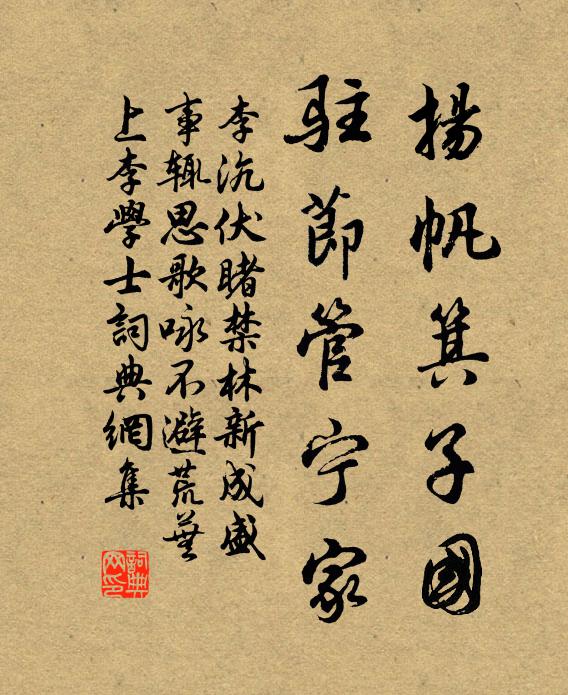 揚帆箕子國
駐節管宁家
李沆伏睹禁林新成盛
事辄思歌咏不避荒蕪
上李學士詞典網集
詞典網印